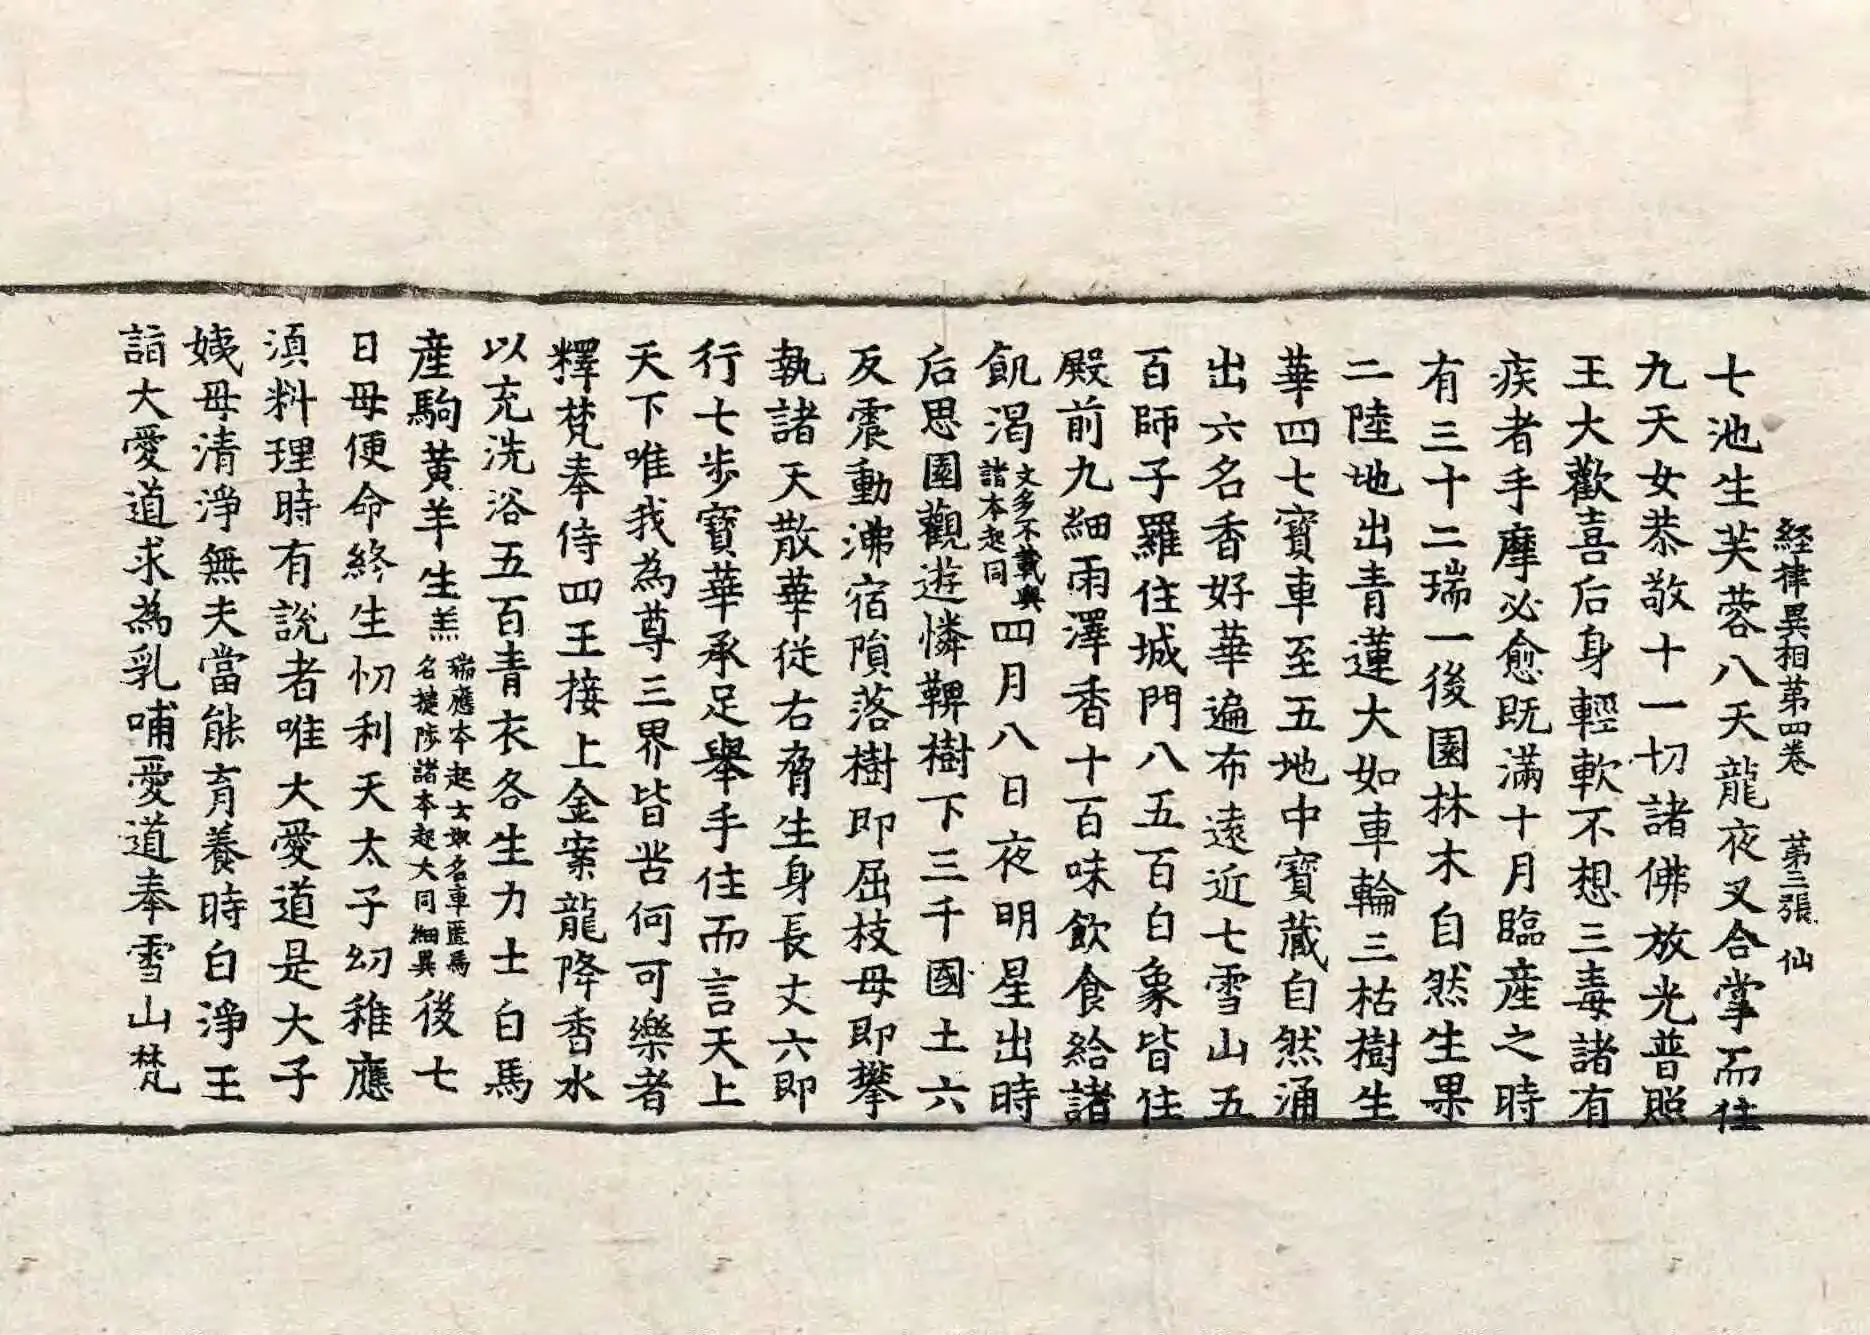 経律異相第四巻 第三張 仙
七池生芙蓉八天龍夜叉合掌而住
九天女恭敬十一切諸佛放光普照
王大歡喜后身輕軟不想三毒諸有
疾者手摩必愈既滿十月臨産之時
有三十二瑞一後園林木自然生果
二陸地出青蓮大如車輪三枯樹生
華四七寶車至五地中寶藏自然涌
出六名香好華遍布遠近七雪山五
百師子羅住城門八五百白象皆住
殿前九細雨澤香十百味飲食給諸
飢渴文多不載與諸本起同四月八日夜明星出時
后思園觀遊憐鞞樹下三千國土六
反震動沸宿隕落樹即屈枝母即攀
執諸天散華従右脅生身長丈六即
行七步寶華承足舉手住而言天上
天下唯我為尊三界皆苦何可樂者
釋梵奉侍四王接上金案龍降香水
以充洗浴五百青衣各生力士白馬
産駒黄羊生羔瑞應本起云奴名車匿馬名揵陟諸本起大同細異後七
日母便命終生忉利天太子幼稚應
湏料理時有說者唯大愛道是大子
姨母清淨無夫當能育養時白淨王
詣大愛道求為乳哺愛道奉雪山梵